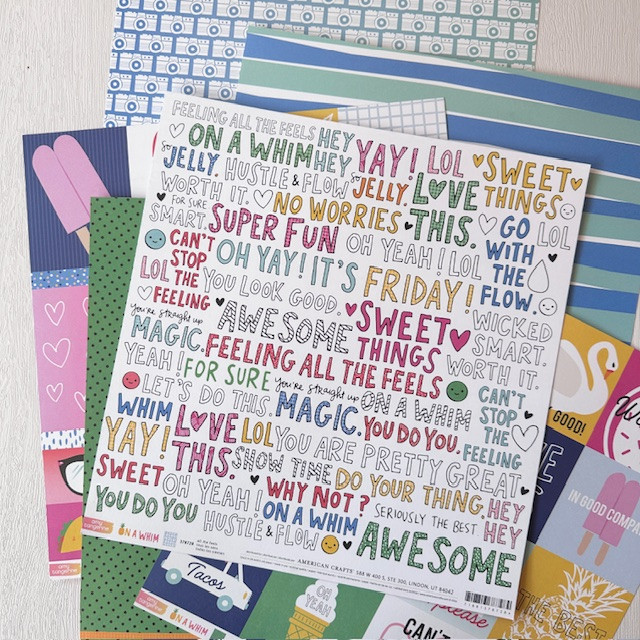 FEELING ALL THE FEELS HEY
ON A WHIM HEY YAY! LOL SWEET
So JELLY. HUSTLE & FLOW So JELLY. LOVE THINGS
WORTH IT. NO WORRIES THIS. GO LOL
FOR SURE SMART. SUPER FUN OH YEAH! LOL WITH
CAN'T OH YAY! IT'S FRIDAY! THE
STOP FLOW.
LOL THE YOU LOOK GOOD.
FEELING AWESOME SWEET WICKED
You're straight up THINGS SMART.
MAGIC. FEELING ALL THE FEELS WORTH IT.
YEAH! FOR SURE You're straight up ON A WHIM CAN'T
LET'S DO THIS. MAGIC. YOU DO YOU. STOP
WHIM LOVE LOL YOU ARE PRETTY GREAT THE
YAY! THIS. SHOW TIME DO YOUR THING. FEELING
SWEET OH YEAH! WHY NOT? SERIOUSLY THE BEST HEY
YOU DO YOU HUSTLE & FLOW ON A WHIM AWESOME HEY
amy tangerine
ON A WHIM
AMERICAN CRAFTS 588 W 400 S, STE 300, LINDON, UT 84042
GOOD!
IN GOOD COMPA
THE BEST
Tacos
OH YEAH
please
CAN'T
amy tangerine
ON A WHIM